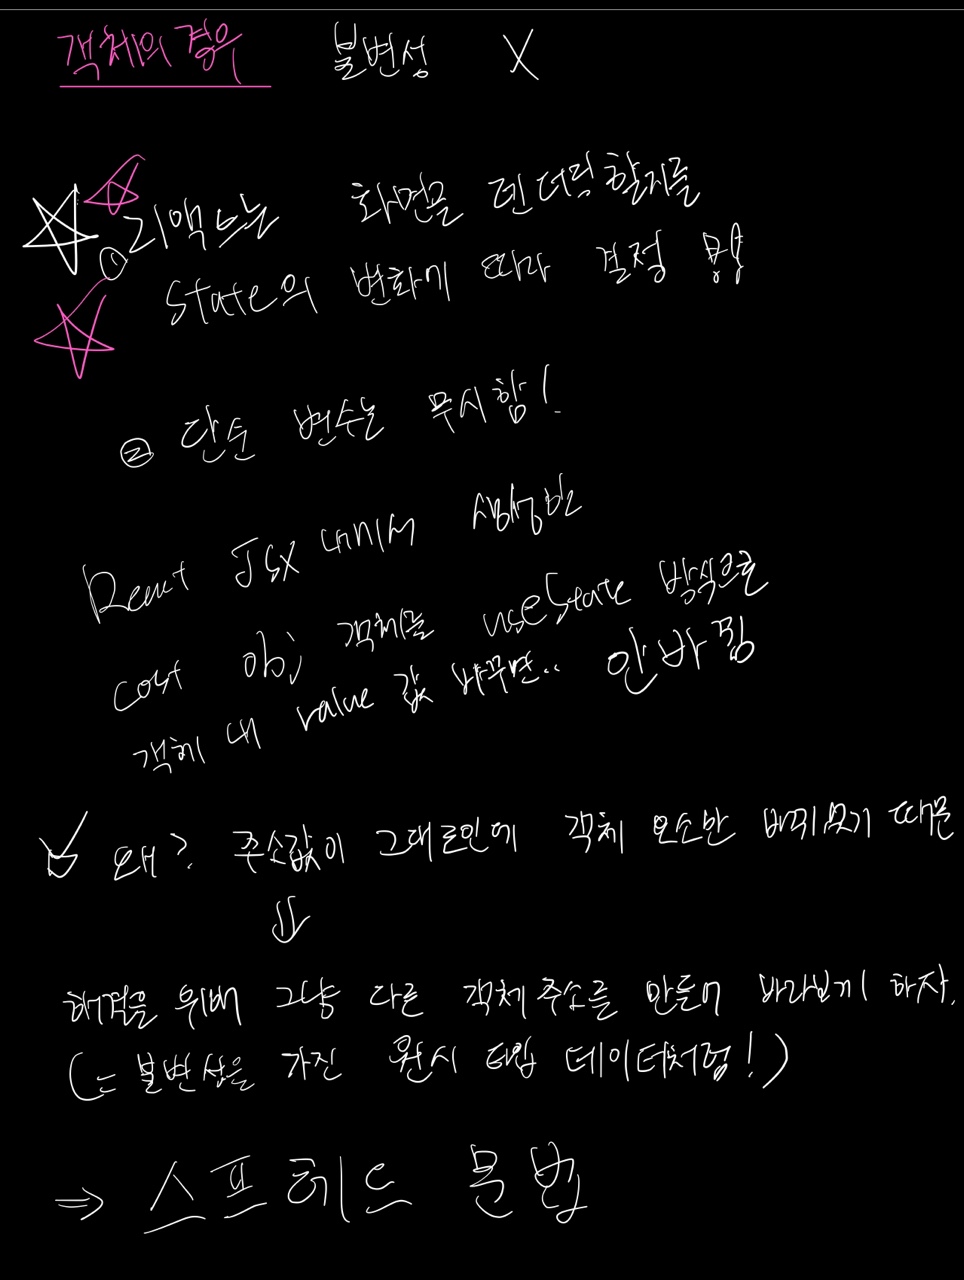 객체의 경우 불변성 X
① 리액트는 화면을 렌더링할지를
state의 변화에 따라 결정
② 단순 변수는 무시함!
React JSX 내에서 생성한
cost obj 객체를 useState 방식으로
객체 내 value 값 바꾸면.. 안바뀜
왜? 주소값이 그대로인에 객체 요소만 바뀌었기 때문
⇓
해결을 위해 그냥 다른 객체 주소를 만들어 바라보게 하자.
(= 불변성을 가진 원시 타입 데이터처럼!)
⇒ 스프레드 문법